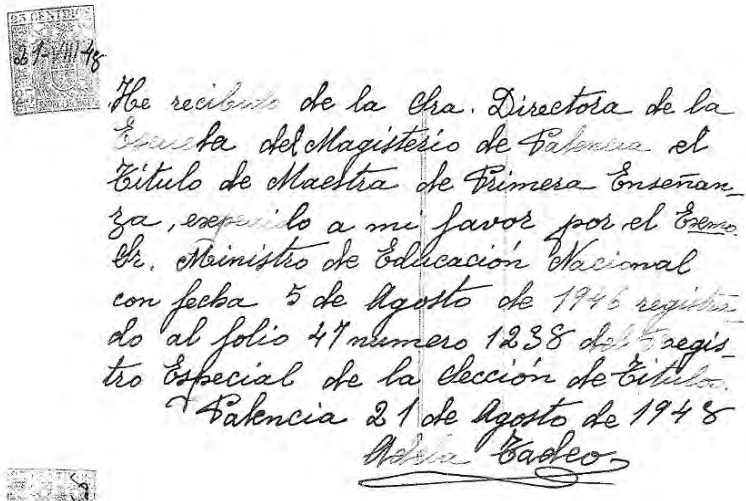 25 CENTIMOS
21-VIII-48
He recibido de la Sra. Directora de la
Escuela del Magisterio de Palencia el
Título de Maestra de Primera Enseñan_
za, expedido a mi favor por el Exmo.
Sr. Ministro de Educación Nacional
con fecha 5 de Agosto de 1946 registra
do al folio 47 numero 1238 del Regis_
tro Especial de la Sección de Titulos.
Palencia 21 de Agosto de 1948
Adela Tadeo